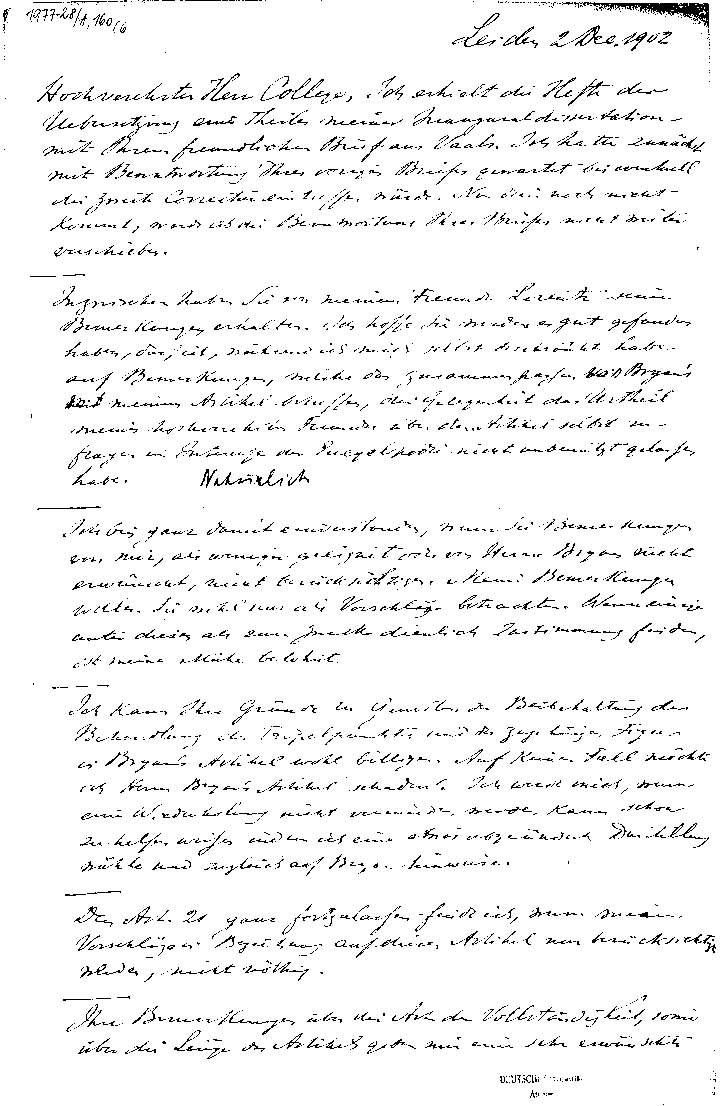 1977-28/A,160/6
Leiden 2 Dec. 1902
Hochverehrter Herr College, Ich erhielt die Hefte der
Uebersetzung eines Theiles meiner Inauguraldissertation
mit Ihrem freundlichen Brief aus Vaals. Ich hatte zunächst
mit Beantwortung Ihres vorigen Briefes gewartet bis eventuell
die zweite Correctur eintreffen würde. Nun diese noch nicht
kommt, werde ich die Beantwortung Ihres Briefes nicht weiter
verschieben.
Inzwischen haben Sie von meinem Freunde Lorentz seine
Bemerkungen erhalten. Ich hoffe Sie werden es gut gefunden
haben, dass ich, während ich mich selbst beschränkt habe
auf Bemerkungen, welche das zusammenpassen von Bryan's
mit meinem Artikel betreffen, die Gelegenheit das Urtheil
meines hochverehrten Freundes über den Artikel selbst zu
fragen im Interesse der Encyclopädie nicht unbenützt gelassen
habe. Natürlich
Ich bin ganz damit einverstanden, wenn Sie Bemerkungen
von mir, als weniger geeignet oder von Herrn Bryan nicht
erwünscht, nicht berücksichtigen. Meine Bemerkungen
wollen Sie nicht nur als Vorschläge betrachten. Wenn einige
unter diesen als zum Zwecke dienlich Zustimmung finden,
ist meine Mühe belohnt.
Ich kann Ihre Gründe zu Gunsten der Beibehaltung der
Behandlung des Tripelpunktes und der zugehörigen Figur
in Bryan's Artikel wohl billigen. Auf keinen Fall möchte
ich Herrn Bryan's Artikel schaden. Ich werde mich, wenn
eine Wiederholung nicht vermieden werden kann schon
zu helfen wissen indem ich eine etwas abgeänderte Darstellung
wähle und zugleich auf Bryan hinweise.
Den Art. 21 ganz fortzulassen finde ich, wenn meine
Vorschläge in Beziehung auf diesen Artikel nur berücksichtigt
werden, nicht nöthig.
Ihre Bemerkungen über die Art der Vollständigkeit, sowie
über die Länge des Artikels geben mir eine sehr erwünschte